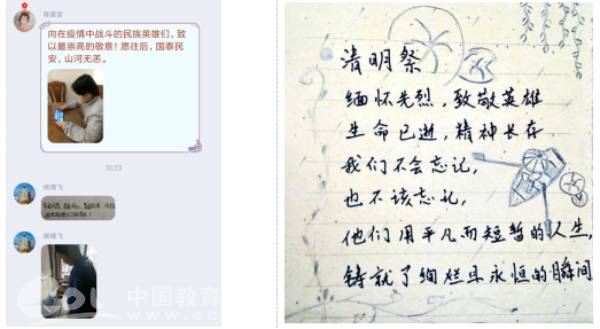 向在疫情中战斗的民族英雄们，致
以最崇高的敬意！愿往后，国泰民
安，山河无恙。
10:23
中国教育
清明祭
缅怀先烈，致敬英雄
生命已逝，精神长存
我们不会忘记，
也不该忘记，
他们用平凡而短暂的人生，
铸就了绚烂且永恒的瞬间